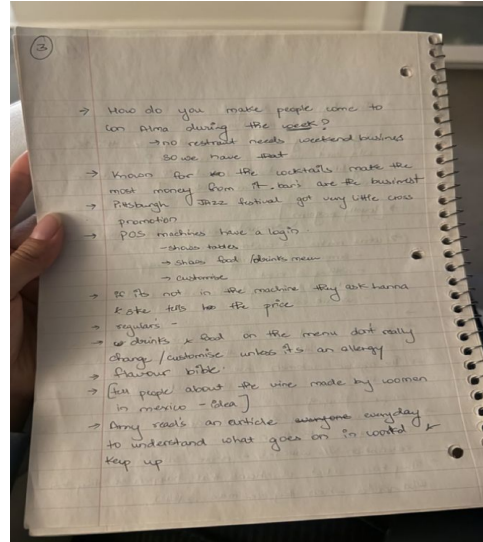 3
→ How do you make people come to
Con Alma during the week?
→ no restraunt needs weekend business
so we have that
→ Known for the cocktails make the
most money from it. bar's are the busiest
→ Pittsburgh Jazz festival got very little cross
promotion
→ POS machines have a login
- shows tables
→ shows food/drinks menu
→ customise
→ if its not in the machine they ask hanna
& she tells the price
→ regulars -
→ drinks & food on the menu dont really
change/customise unless its an allergy
→ flavour bible
→ [tell people about the wine made by women
in mexico - idea]
→ Amy read's an article everyday
to understand what goes on in world &
keep up